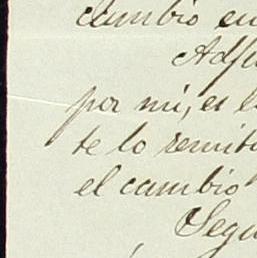 cambio en
Adju
por mi, es l
te lo remit
el cambio
Segu